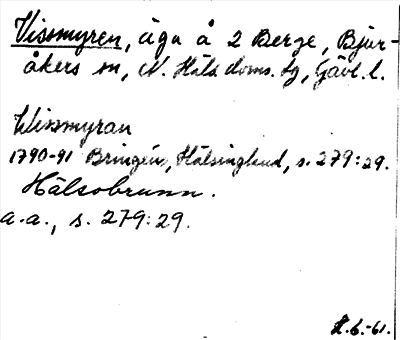 Vissmyren, äga å 2 Berge, Bjur-
åkers sn, N. Häls doms. tg, Gävl. l.
Wissmyran
1790-91 Bringéus, Hälsingland, s. 279:29.
Hälsobrunn.
a.a., s. 279:29.
H.6.-61.